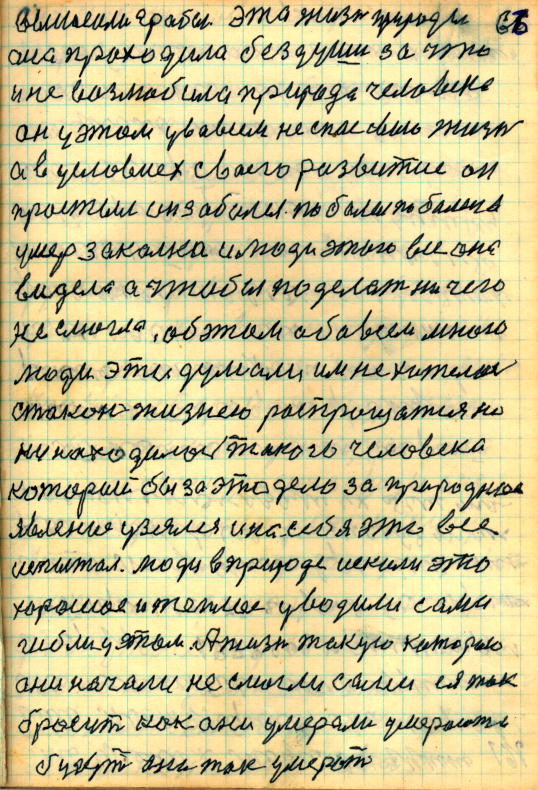 эта жизн природы 65
она проходила без души за что
и не возлюбила природа человека
он у этом у всем не спас свою жизн
а в условиех своего развитие он
простыл он заболел. поболел поболел и
умер за какко и люди этого все она
видела а чтобы поделат ничего
не смогла, об этом обо всем много
люди эти думали, им не хотелос
с такой жизнею распрощатися но
ни находилос такого человека
который бы за это дело за природное
явление узялся и на себя это все
испытал. люди в природе искали это
хорошое и теплое уводили сами
гибли у этом. А жизн такую которую
они начали не смогли сами ея так
бросит как они умерали умерают и
будут они так умерат